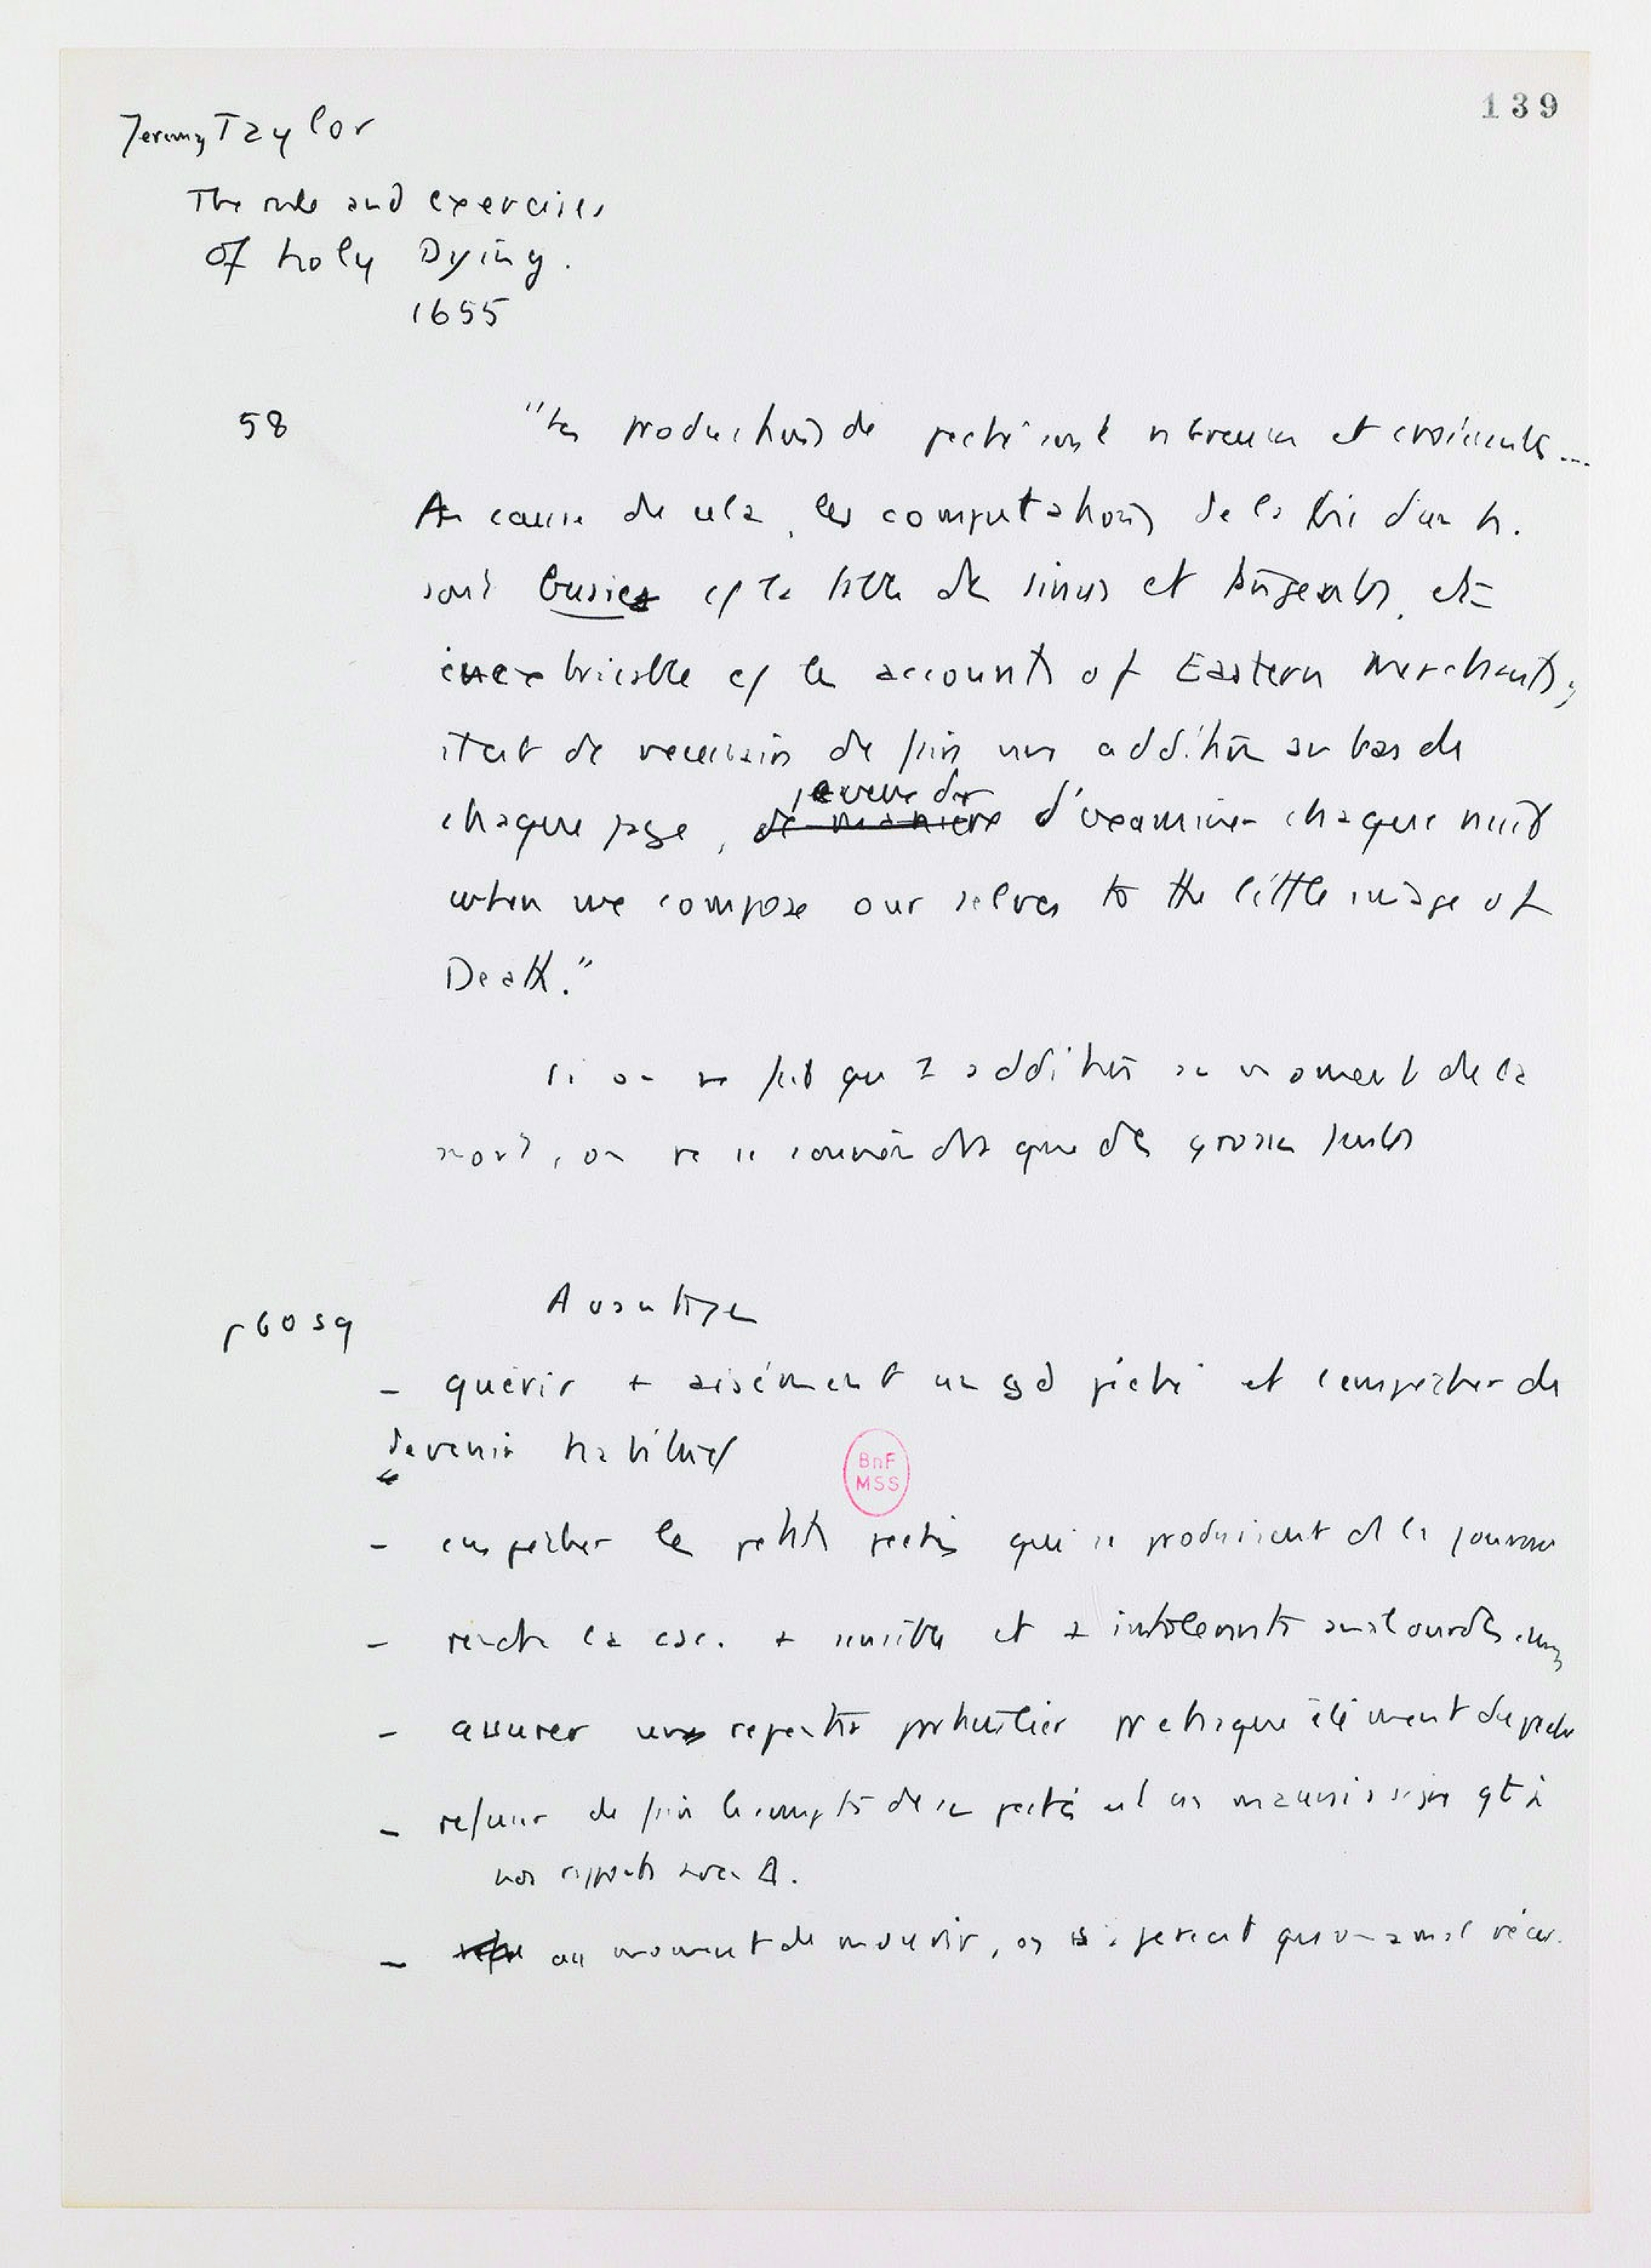 139
Jeremy Taylor
The rule and exercises
of holy Dying.
1655
58
"Les productions de péché sont nbreuses et croissants...
A cause de cela, les computations de la vie d'un h.
sont busies c/ la table de sinus et tangents, et
inextricable c/ les accounts of Eastern Merchants,
était de faire une addition au bas de
chaque page, je veux dire d'examiner chaque nuit
when we compose our selves to the little image of
Death."
Si on ne fait qu'1 addition au moment de la
mort, on ne se souviendra que des grosses fautes
p 60 sq
Avantages
- guérir + aisément un gd péché et l'empêcher de
devenir habituel
- empêcher les petits péchés qui se produisent ds la journée
- rendre la csc. + sensible et + intolerante aux
- assurer une repentir particulier pr chaque élément du péché
- refuser de faire le compte de ses péchés est un mauvais signe qt à
nos rapports avec
- au moment de mourir, on s'aperçoit que on a mal vécu.
BnF
MSS